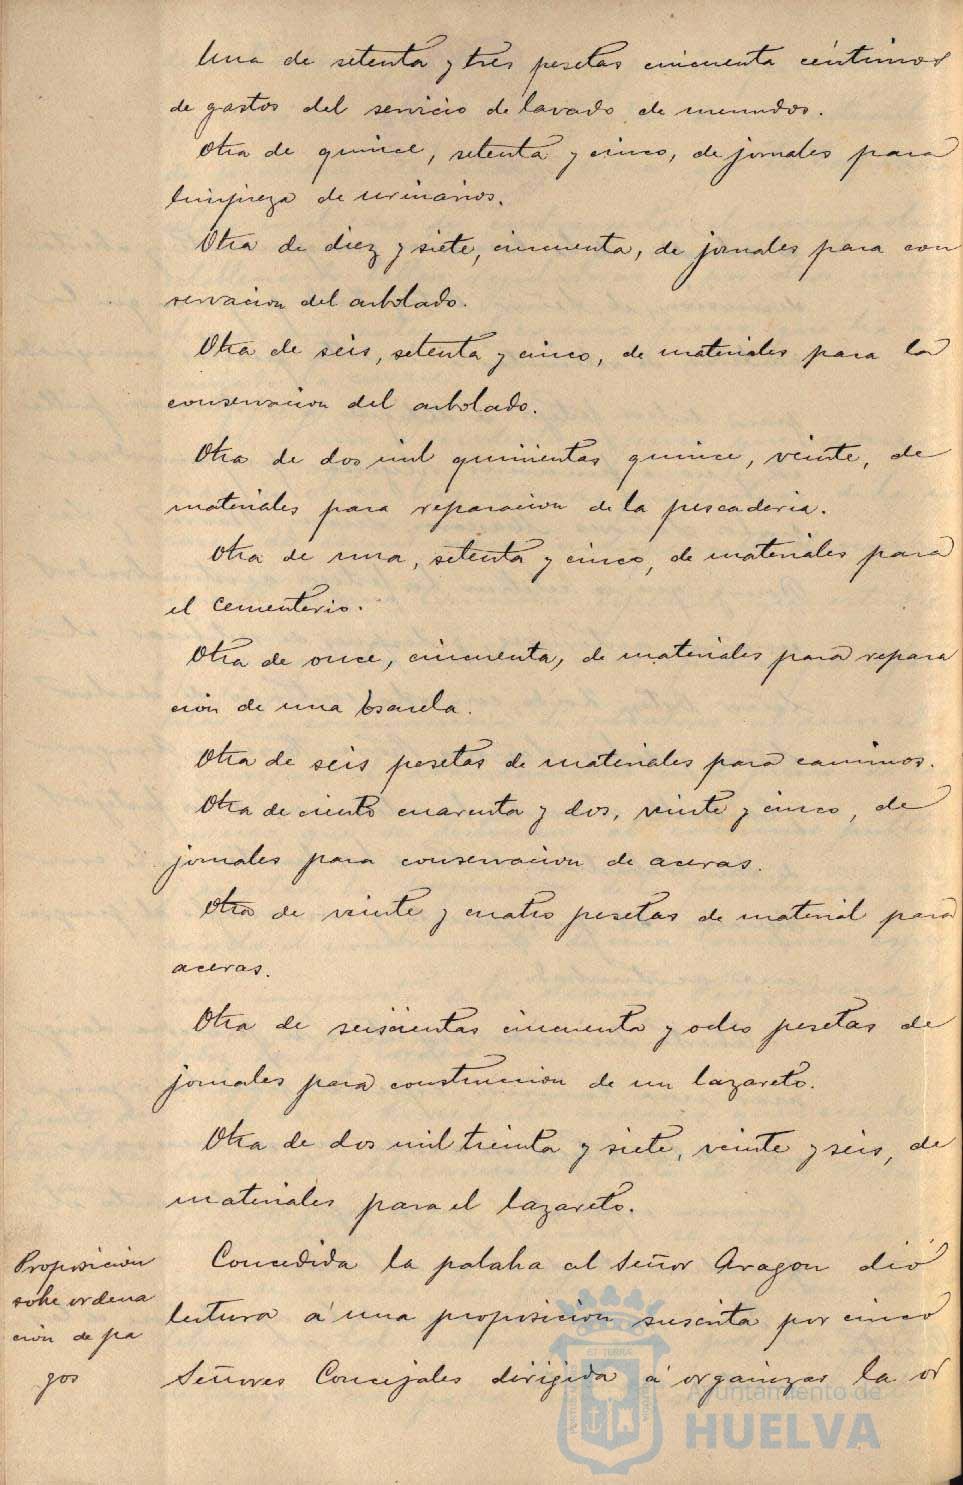 Una de setenta y tres pesetas cincuenta céntimos
de gastos del servicio de lavado de menudos.
Otra de quince, setenta y cinco, de jornales para
limpieza de urinarios.
Otra de diez y siete, cincuenta, de jornales para con
servacion del arbolado.
Otra de seis, setenta y cinco, de materiales para la
conservacion del arbolado.
Otra de dos mil quinientas quince, veinte, de
materiales para reparacion de la pescaderia.
Otra de una, setenta y cinco, de materiales para
el cementerio.
Otra de once, cincuenta, de materiales para repara
ción de una
Otra de seis pesetas de materiales para caminos.
Otra de ciento cuarenta y dos, veinte y cinco, de
jornales para conservacion de aceras.
Otra de veinte y cuatro pesetas de material para
aceras.
Otra de seiscientas cincuenta y ocho pesetas de
jornales para construccion de un lazareto.
Otra de dos mil treinta y siete, veinte y seis, de
materiales para el lazareto.
Proposicion
sobre ordena
ción de pa
gos
Concedida la palabra al Señor Aragon dió
lectura á una proposicion suscrita por cinco
Señores Concejales dirigida á organizar la or
Ayuntamiento de
HUELVA